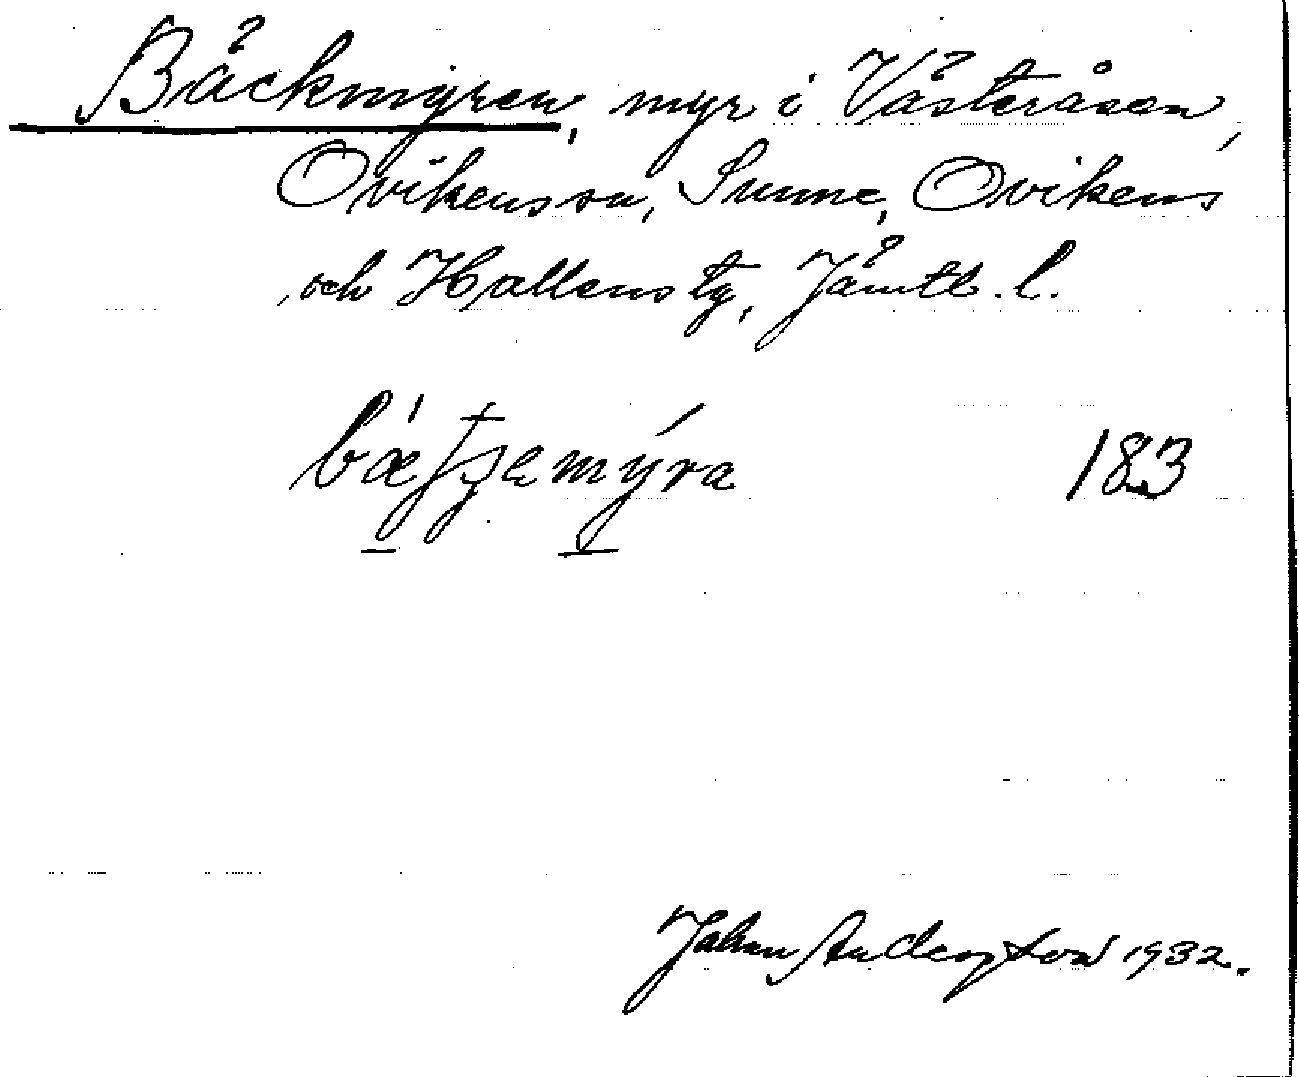 Bäckmyren, myr i Västeråsen,
Ovikenssn, Sunne, Ovikens
och Hallens tg, Jämtl. l.
183
John Anderzton 1932.